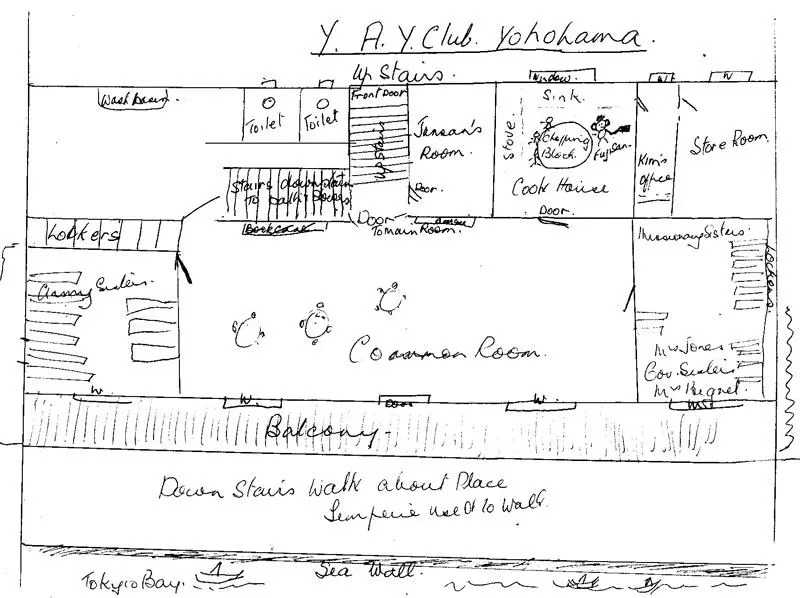 Y. A. Y. Club. Yohohama.
Up Stairs.
Window.
W
W
Wash Basin.
Toilet
Toilet
Front Door
Up Stairs
Room.
Door.
Stove.
Sink.
Chopping
Block.
Fuji San.
Cook House
Door.
Kim's
Office
Store Room.
Stairs down stairs
to
Lockers
Bookcase
Door
To main Room.
Missionary Sisters.
Lockers.
Army Sisters.
Common Room.
Mrs Jones
Gov. Sisters
W.
W.
Door
W.
Balcony.
Down Stairs Walk about Place
used to Walk.
Sea Wall.
Tokyio Bay.